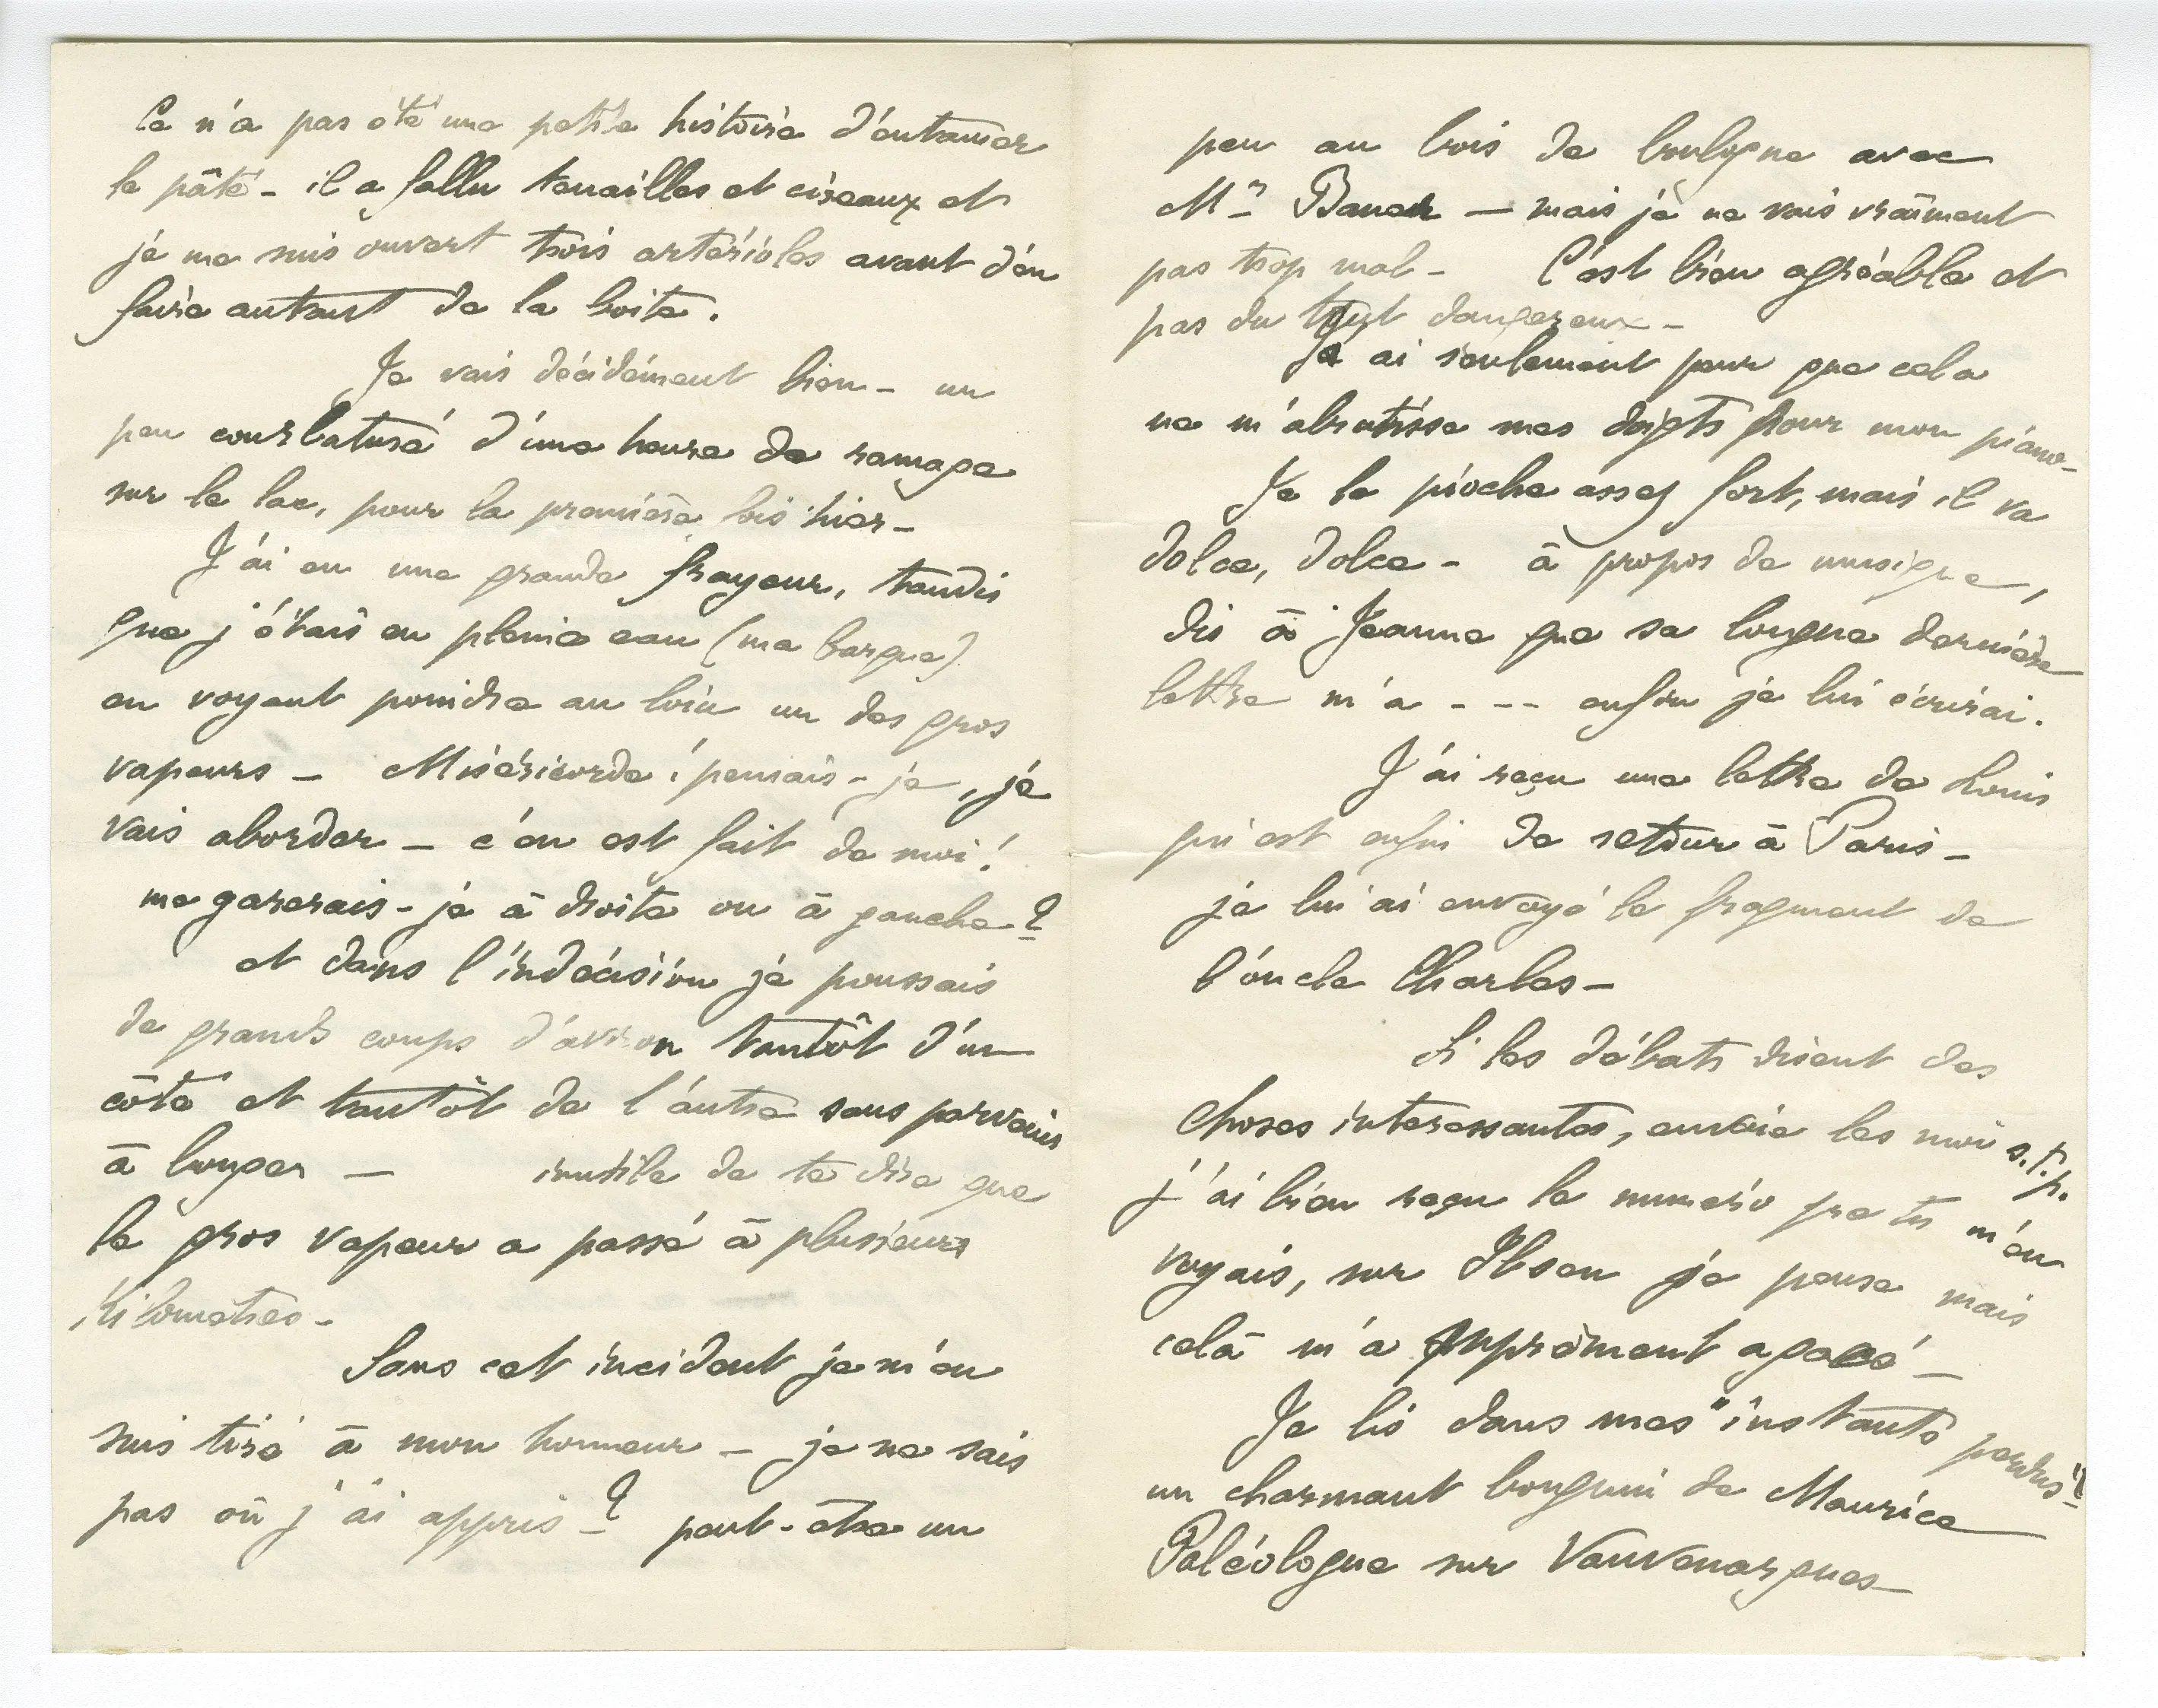 Ce n'a pas été une petite histoire d'entamer
le pâté - il a fallu tenailles et ciseaux et
je me suis ouvert trois artérioles avant d'en
faire autant de la boite.
Je vais décidément bien - un
peu courbaturé d'une heure de ramage
sur le lac, pour la première fois hier -
J'ai eu une grande frayeur, tandis
que j'étais en pleine eau (ma barque)
en voyant poindre au loin un des gros
vapeurs - Miséricorde ! pensais-je, je
vais aborder - c'en est fait de moi !
me garerais-je à droite ou à gauche ?
et dans l'indécision je poussais
de grands coups d'aviron tantôt d'un
côté et tantôt de l'autre sans parvenir
à bouger - inutile de te dire que
le gros vapeur a passé à plusieurs
Kilomètres -
Sans cet incident je m'en
suis tiré à mon honneur - je ne sais
pas où j'ai appris - ? peut-être un
peu au bois de boulogne avec
Mr Bauer - mais je ne vais vraiment
pas trop mal - C'est bien agréable et
pas du tout dangereux -
J'ai seulement peur que cela
ne m'abrutisse mes doigts pour mon piano -
Je le pioche assez fort, mais il va
dolce, dolce - à propos de musique,
dis à Jeanne que sa longue dernière
lettre m'a - - - enfin je lui écrirai.
J'ai reçu une lettre de Louis
qui est enfin de retour à Paris -
je lui ai envoyé le fragment de
l'oncle Charles -
Si les débats disent des
choses interessantes, envoie les moi s.t.p.
j'ai bien reçu le numéro que tu m'en
voyais, sur Ibsen je pense mais
celà m'a suprêment agacé -
Je lis dans mes "instants perdus"!
un charmant bouquin de Maurice
Paléologue sur Vauvenargues -